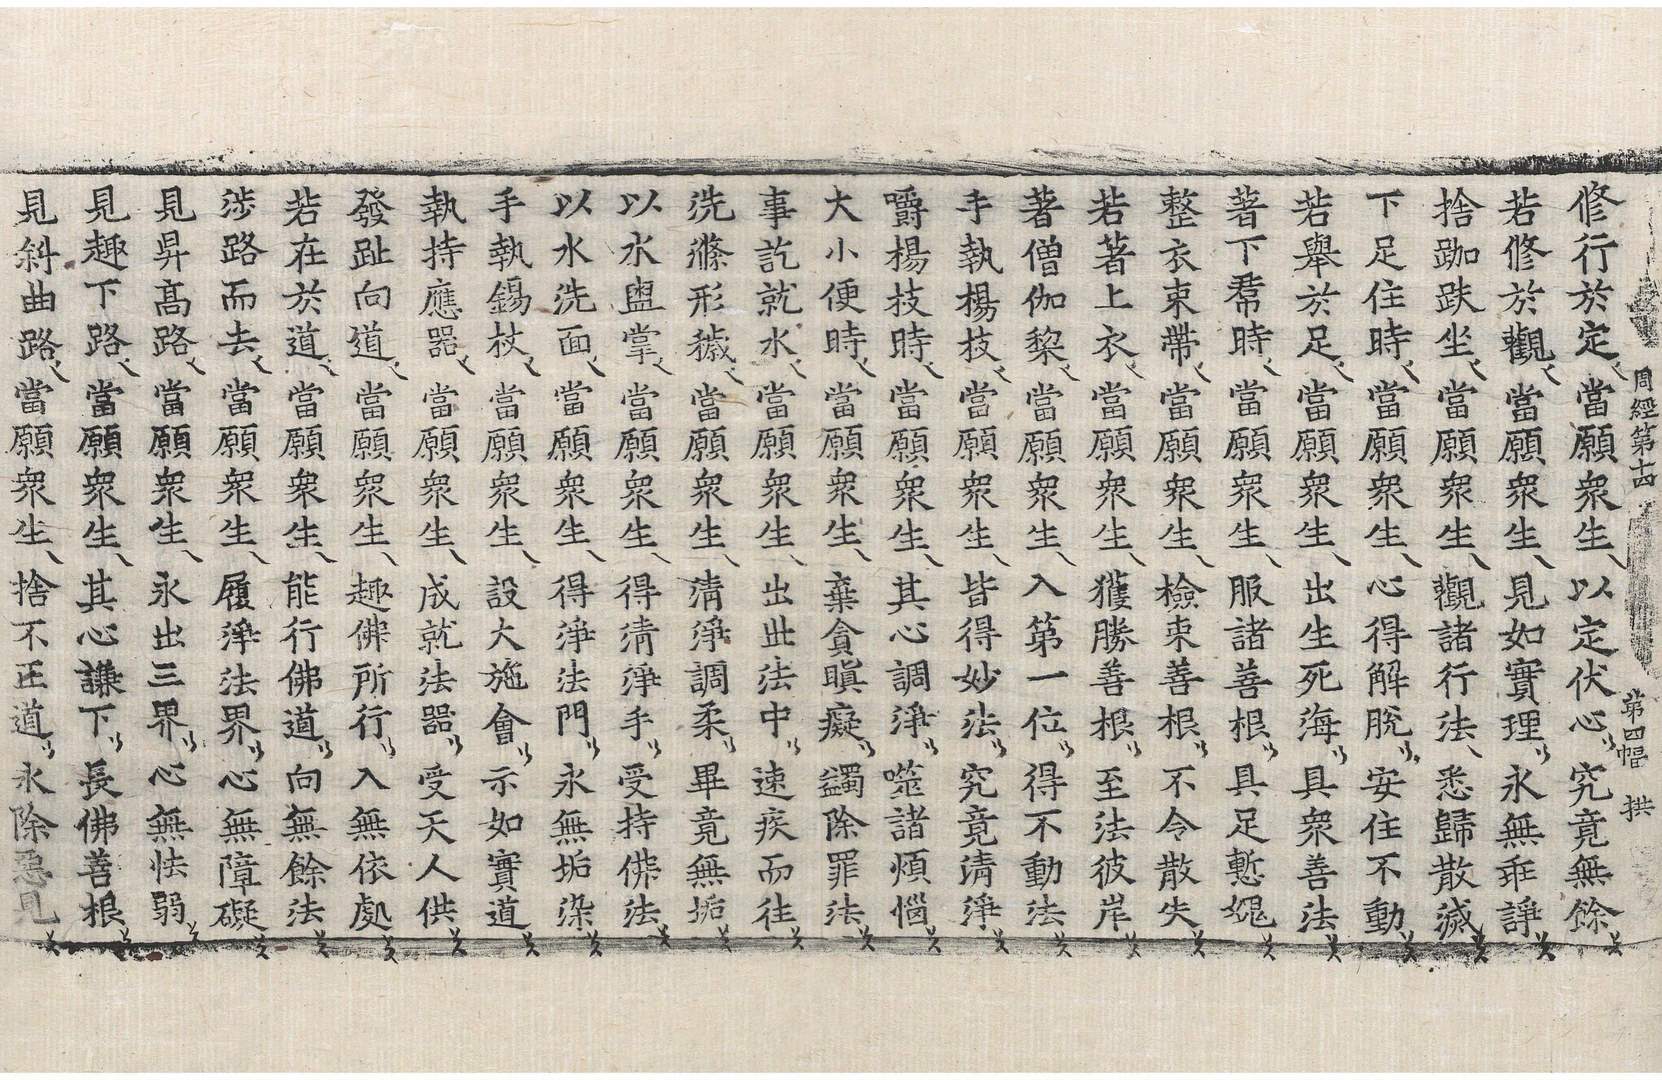 周經第十四 第四幅 拱
修行於定當願衆生以定伏心究竟無餘
若修於觀當願衆生見如實理永無乖諍
捨跏趺坐當願衆生觀諸行法悉歸散滅
下足住時當願衆生心得解脫安住不動
若舉於足當願衆生出生死海具衆善法
著下帬時當願衆生服諸善根具足慙愧
整衣束帶當願衆生檢束善根不令散失
若著上衣當願衆生獲勝善根至法彼岸
著僧伽黎當願衆生入第一位得不動法
手執楊枝當願衆生皆得妙法究竟清淨
嚼楊枝時當願衆生其心調淨噬諸煩惱
大小便時當願衆生棄貪瞋癡蠲除罪法
事訖就水當願衆生出世法中速疾而往
洗滌形穢當願衆生清淨調柔畢竟無垢
以水盥掌當願衆生得清淨手受持佛法
以水洗面當願衆生得淨法門永無垢染
手執錫杖當願衆生設大施會示如實道
執持應器當願衆生成就法器受天人供
發趾向道當願衆生趣佛所行入無依處
若在於道當願衆生能行佛道向無餘法
涉路而去當願衆生履淨法界心無障礙
見昇高路當願衆生永出三界心無怯弱
見趣下路當願衆生其心謙下長佛善根
見斜曲路當願衆生捨不正道永除惡見